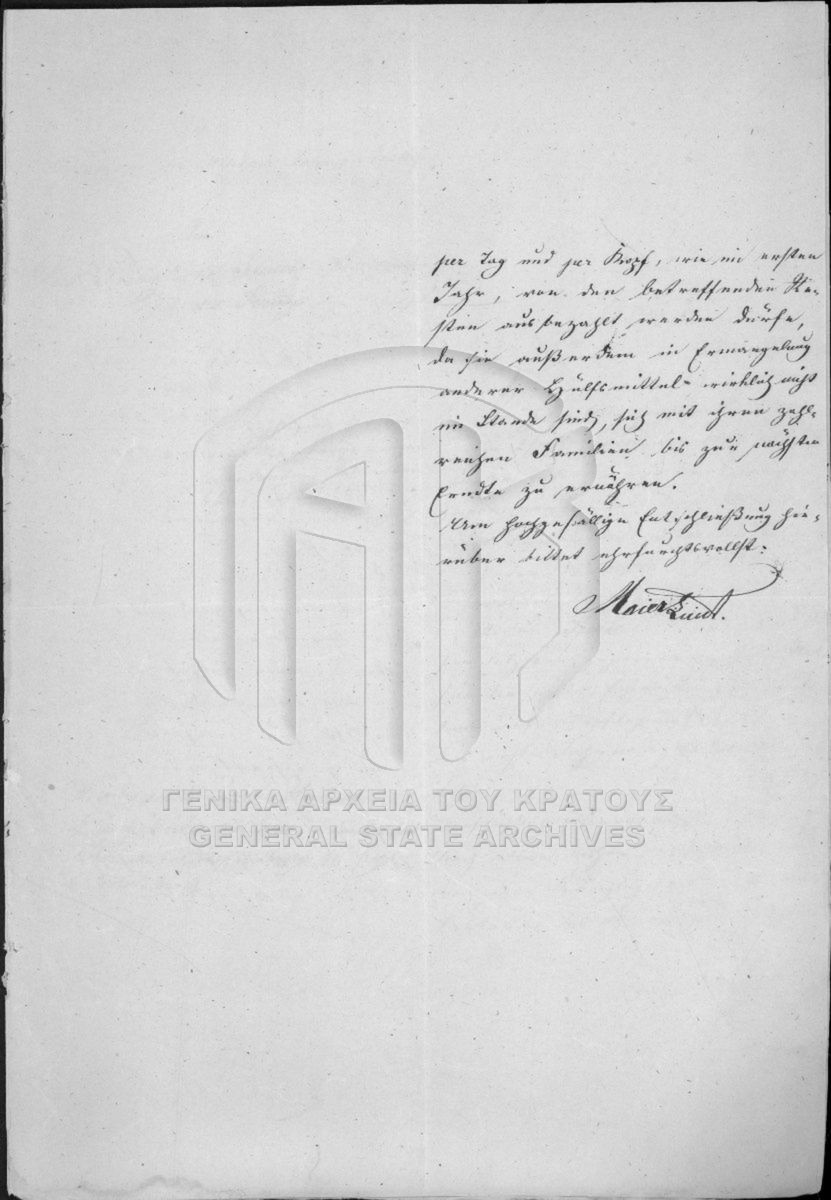 per Tag und per Kopf, wie im ersten
Jahr, von den betreffenden Ka-
sten ausbezahlt werden dürfe,
da sie außerdem in Ermangelung
anderer Hülfsmittel wirklich nicht
im Stande sind, sich mit ihren zahl-
reichen Familien bis zur nächsten
Erndte zu ernähren.
Um hochgefällige Entschließung hie-
rüber bittet ehrfurchtsvollst:
Maier
ΓΕΝΙΚΑ ΑΡΧΕΙΑ ΤΟΥ ΚΡΑΤΟΥΣ
GENERAL STATE ARCHIVES